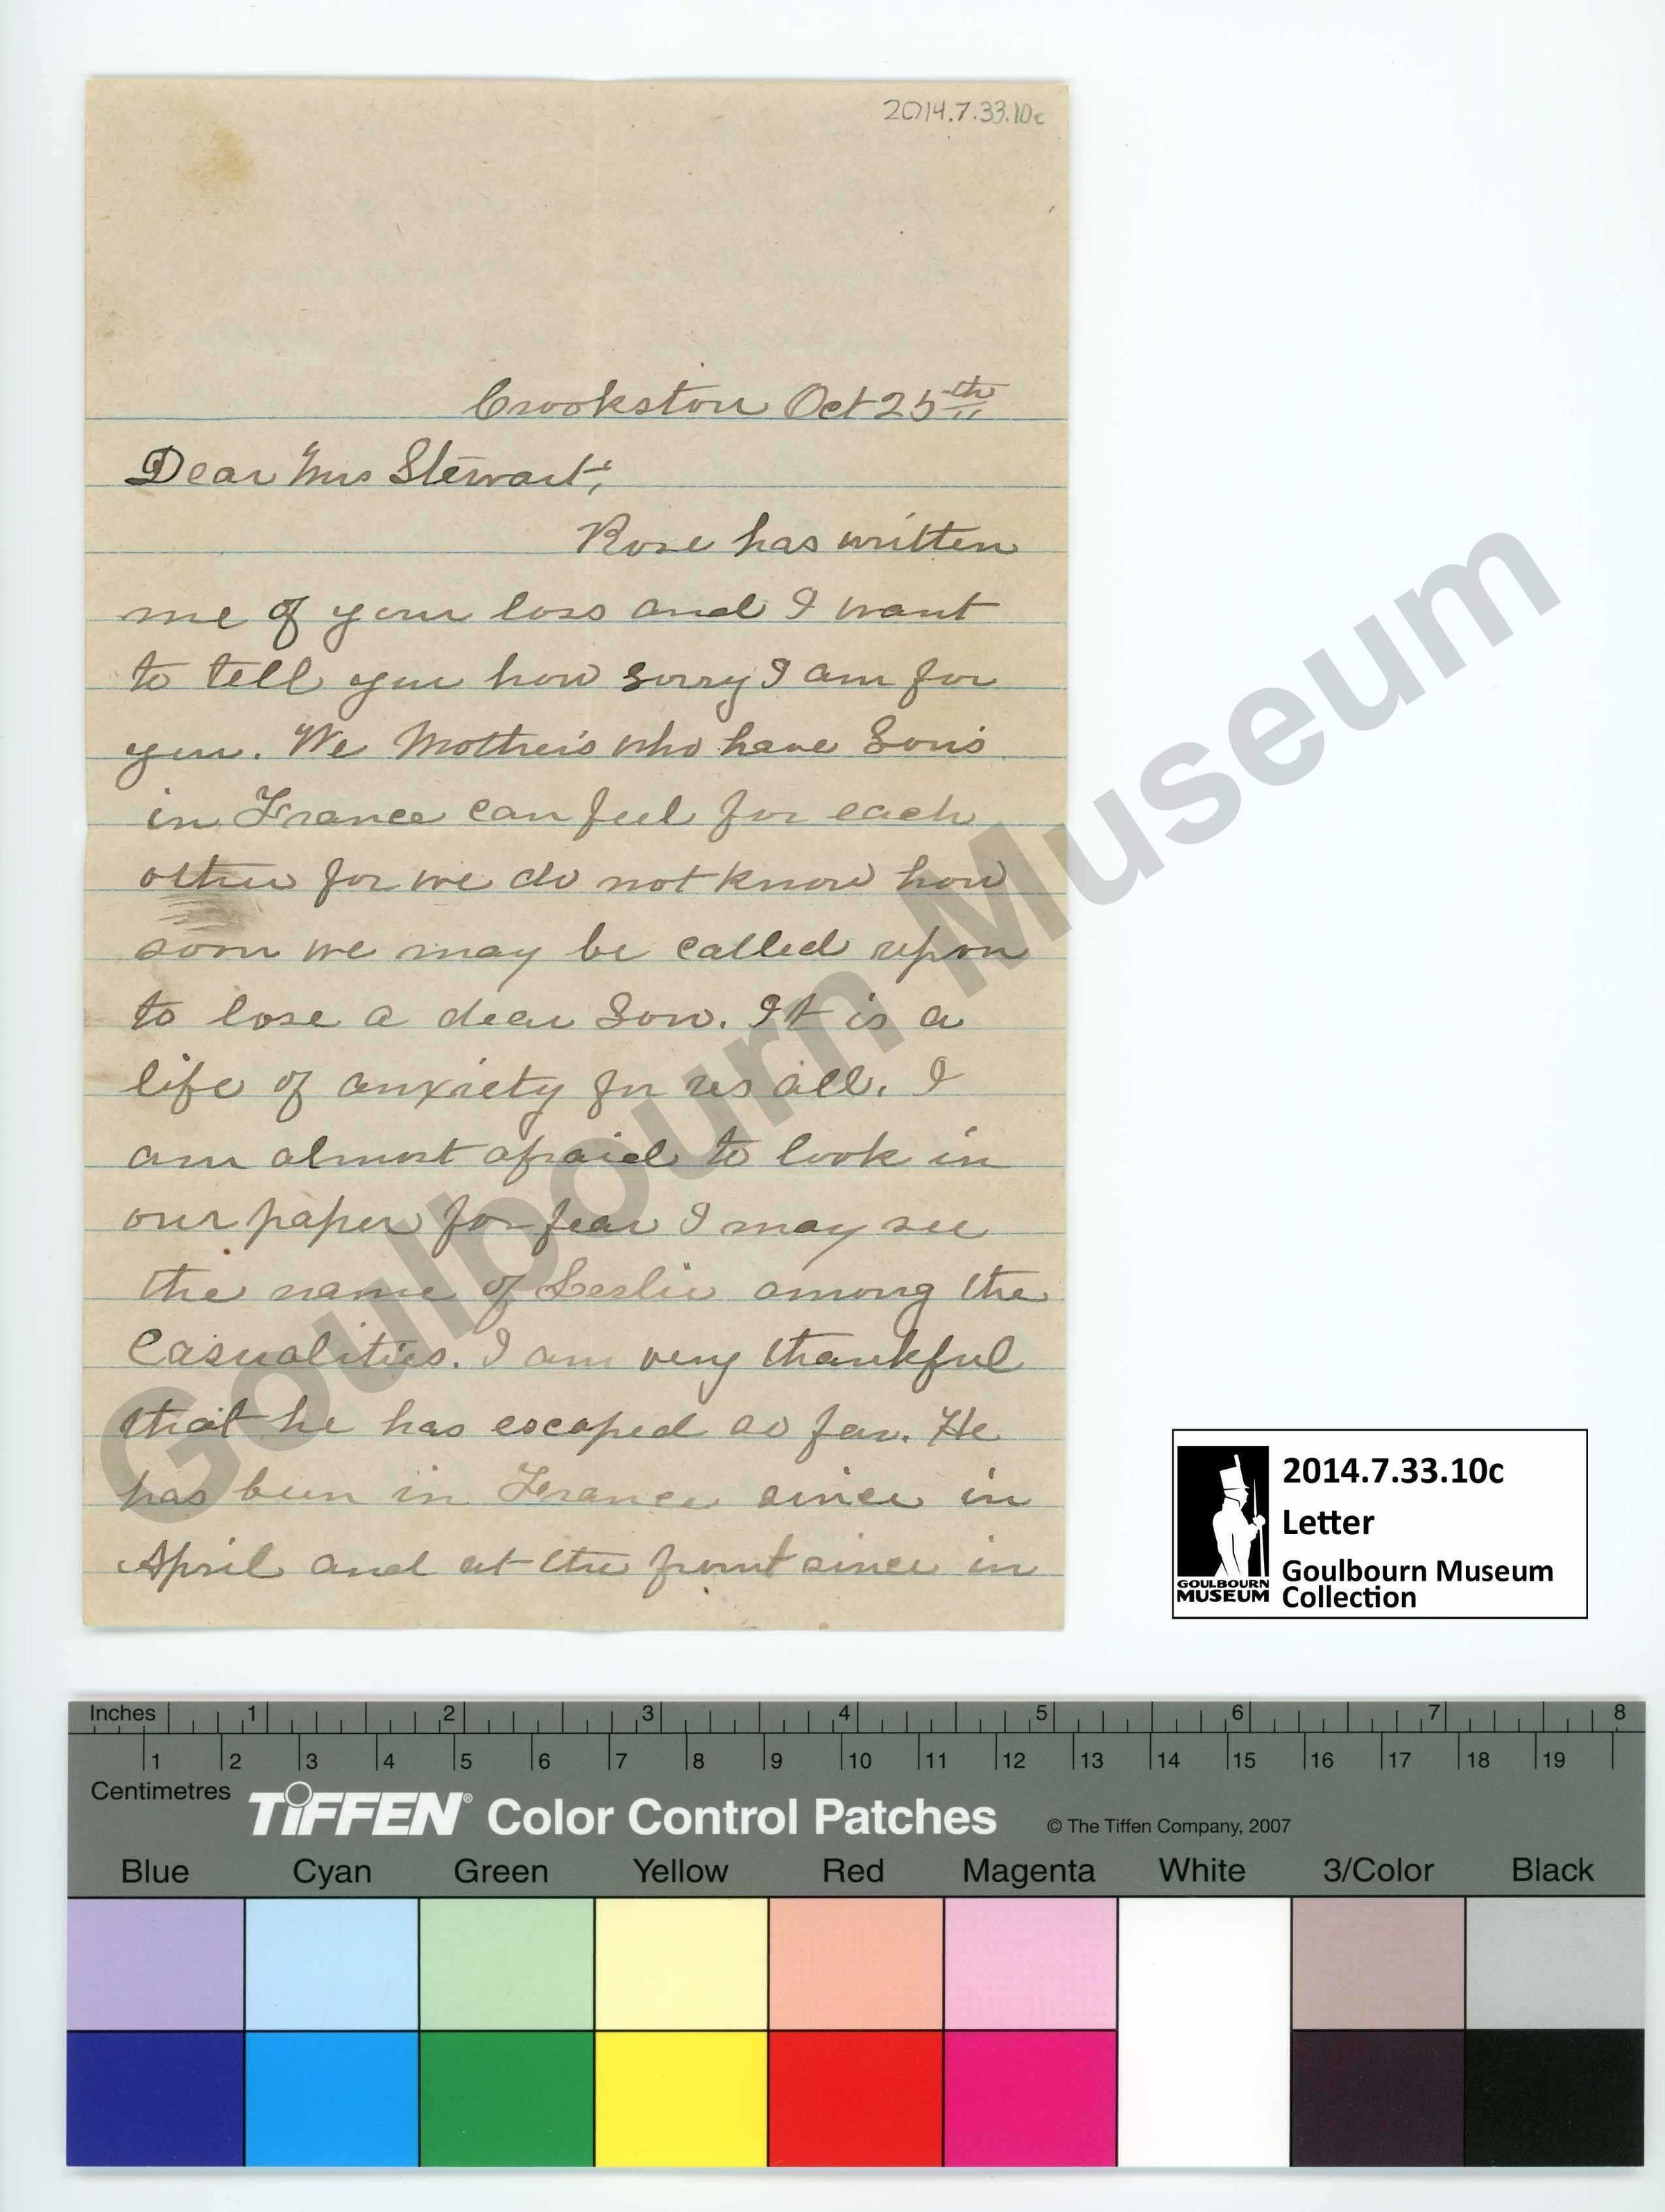 2014.7.33.10c
Crookston Oct 25th
Dear Mrs Stewart;
Rose has written
me of your loss and I want
to tell you how sorry I am for
you. We Mothers who have Sons
in France can feel for each
other for we do not know how
soon we may be called upon
to lose a dear Son. It is a
life of anxiety for us all. I
am almost afraid to look in
our paper for fear I may see
the name of Leslie among the
Casualities. I am very thankful
that he has escaped so far. He
has been in France since in
April and at the front since in
Goulbourn Museum
2014.7.33.10c
Letter
Goulbourn Museum
Collection
GOULBOURN
MUSEUM
Inches 1 2 3 4 5 6 7 8
1 2 3 4 5 6 7 8 9 10 11 12 13 14 15 16 17 18 19
Centimetres
TIFFEN® Color Control Patches © The Tiffen Company, 2007
Blue Cyan Green Yellow Red Magenta White 3/Color Black